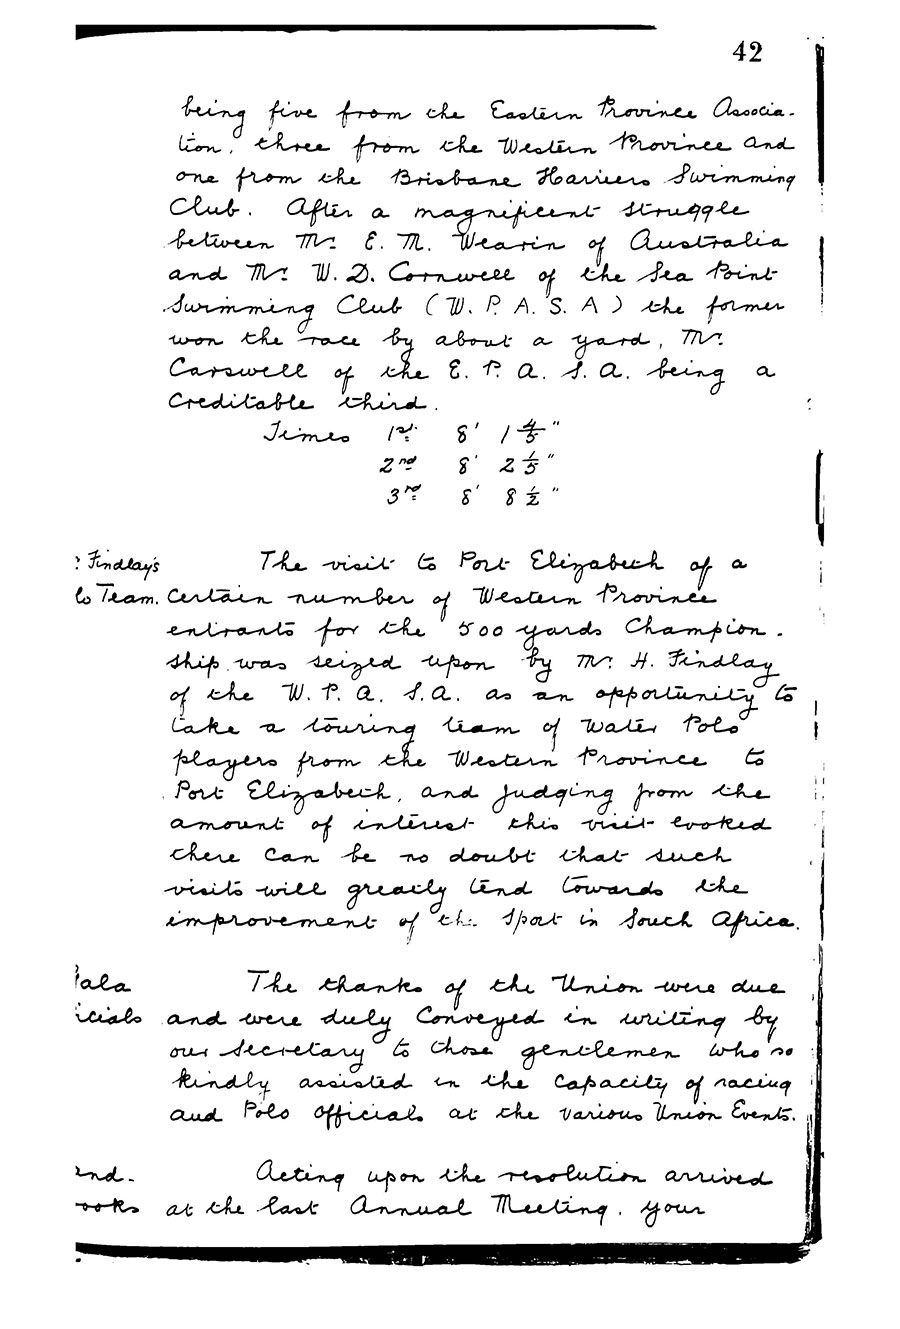 42
being five from the Eastern Province Associa-
tion, three from the Western Province and
one from the Brisbane Harriers Swimming
Club. After a magnificent struggle
between Mr. E. M. Wearin of Australia
and Mr. W. D. Cornwell of the Sea Point
Swimming Club (W. P. A. S. A) the former
won the race by about a yard, Mr.
Carswell of the E. P. A. S. A. being a
Creditable third.
Times 1st 8' 1 4/5"
2nd 8' 2 1/5"
3rd 8' 8 1/2"
Findlay's The visit to Port Elizabeth of a
lo Team. Certain number of Western Province
entrants for the 500 yards Champion-
ship was seized upon by Mr. H. Findlay
of the W. P. A. S. A. as an opportunity to
take a touring team of Water Polo
players from the Western Province to
Port Elizabeth, and judging from the
amount of interest this visit evoked
there can be no doubt that such
visits will greatly tend towards the
improvement of the Sport in South Africa.
ala The thanks of the Union were due
icials and were duly Conveyed in writing by
our Secretary to those gentlemen who so
kindly assisted in the capacity of racing
and Polo Officials at the various Union Events.
end- Acting upon the resolution arrived
ooks at the last Annual Meeting, your